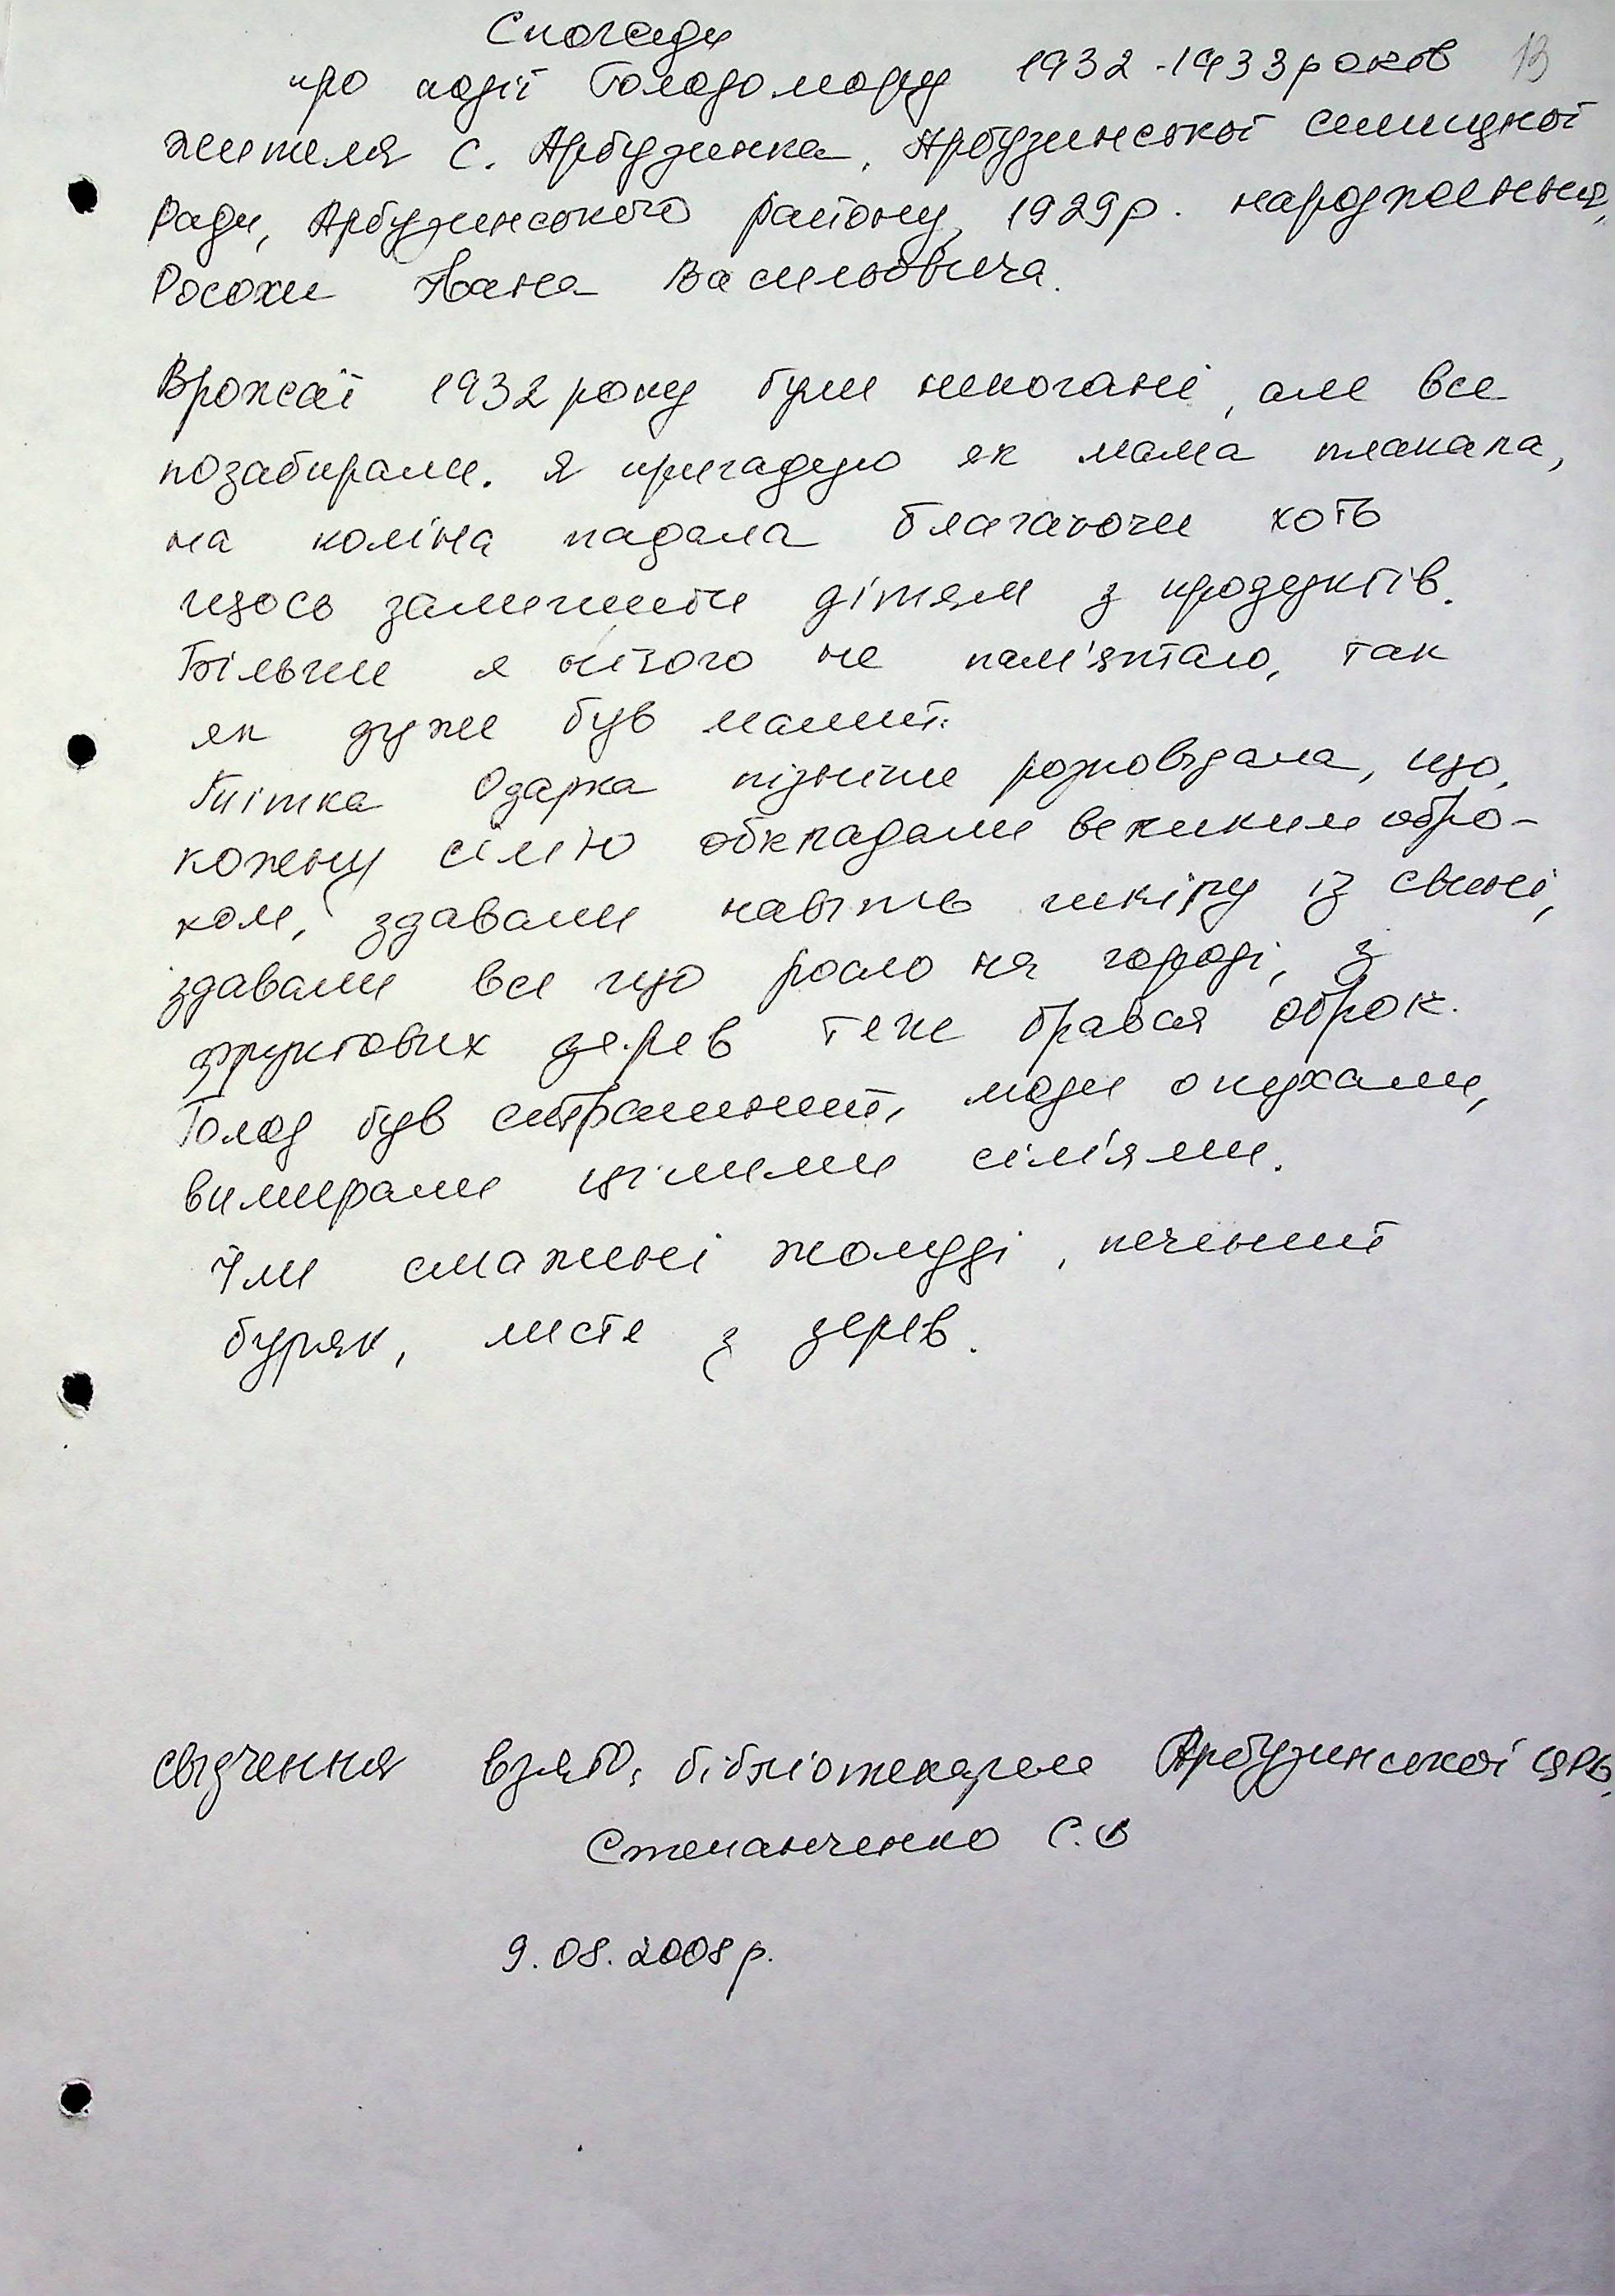 Спогади
про події Голодомору 1932-1933 років 13
жителя с. Арбузинка, Арбузинської селищної
Ради, Арбузинського району, 1929 р. народження,
Росохи Івана Васильовича.
Врожаї 1932 року були непогані, але все
позабирали. Я пригадую як мама плакала,
на коліна падала благаючи хоть
щось залишити дітям з продуктів.
Більше я нічого не пам'ятаю, так
як дуже був малий.
Тітка Одарка пізніше розповідала, що,
кожну сім'ю обкладали великим обро-
ком, здавали навіть шкіру із свині,
здавали все що росло на городі, з
фруктових дерев теж брався оброк.
Голод був страшний, люди опухали,
вимирали цілими сім'ями.
Їли смажені жолуді, печений
буряк, листя з дерев.
свідчення взято, бібліотекарем Арбузинської ЦРБ,
Степанченко С.В
9.08.2008 р.